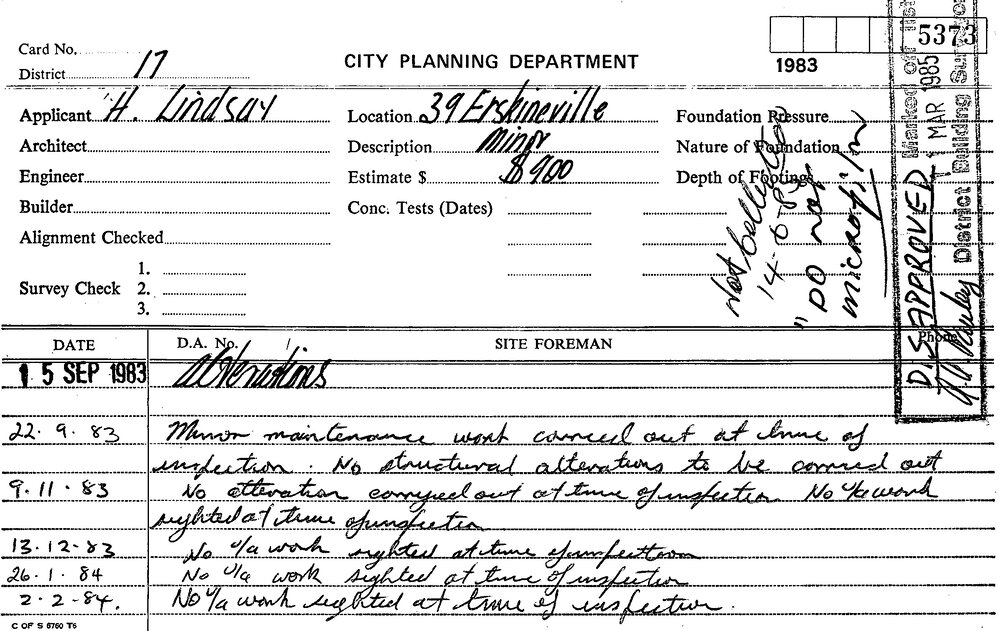 Card No.
District 17
CITY PLANNING DEPARTMENT
5373
1983
Applicant H. Lindsay
Location 39 Erskineville
Foundation Pressure
Architect
Description minor
Nature of Foundation
Engineer
Estimate $ $900
Depth of Footings
Builder
Conc. Tests (Dates)
Alignment Checked
1.
Survey Check 2.
3.
14-6-
"DO not
microfilm
Marked off list
1 MAR 1985
District Building Surveyor
DISAPPROVED
DATE
D.A. No.
SITE FOREMAN
Phone
15 SEP 1983 alterations
22.9.83 Minor maintenance work carried out at time of
inspection. No structural alterations to be carried out
9.11.83 No alteration carryed out at time of inspection No u/a work
sighted at time of inspection
13.12-83 No u/a work sighted at time of inspection
26.1.84 No u/a work sighted at time of inspection
2-2-84. No u/a work sighted at time of inspection.
C OF S 6760 T6